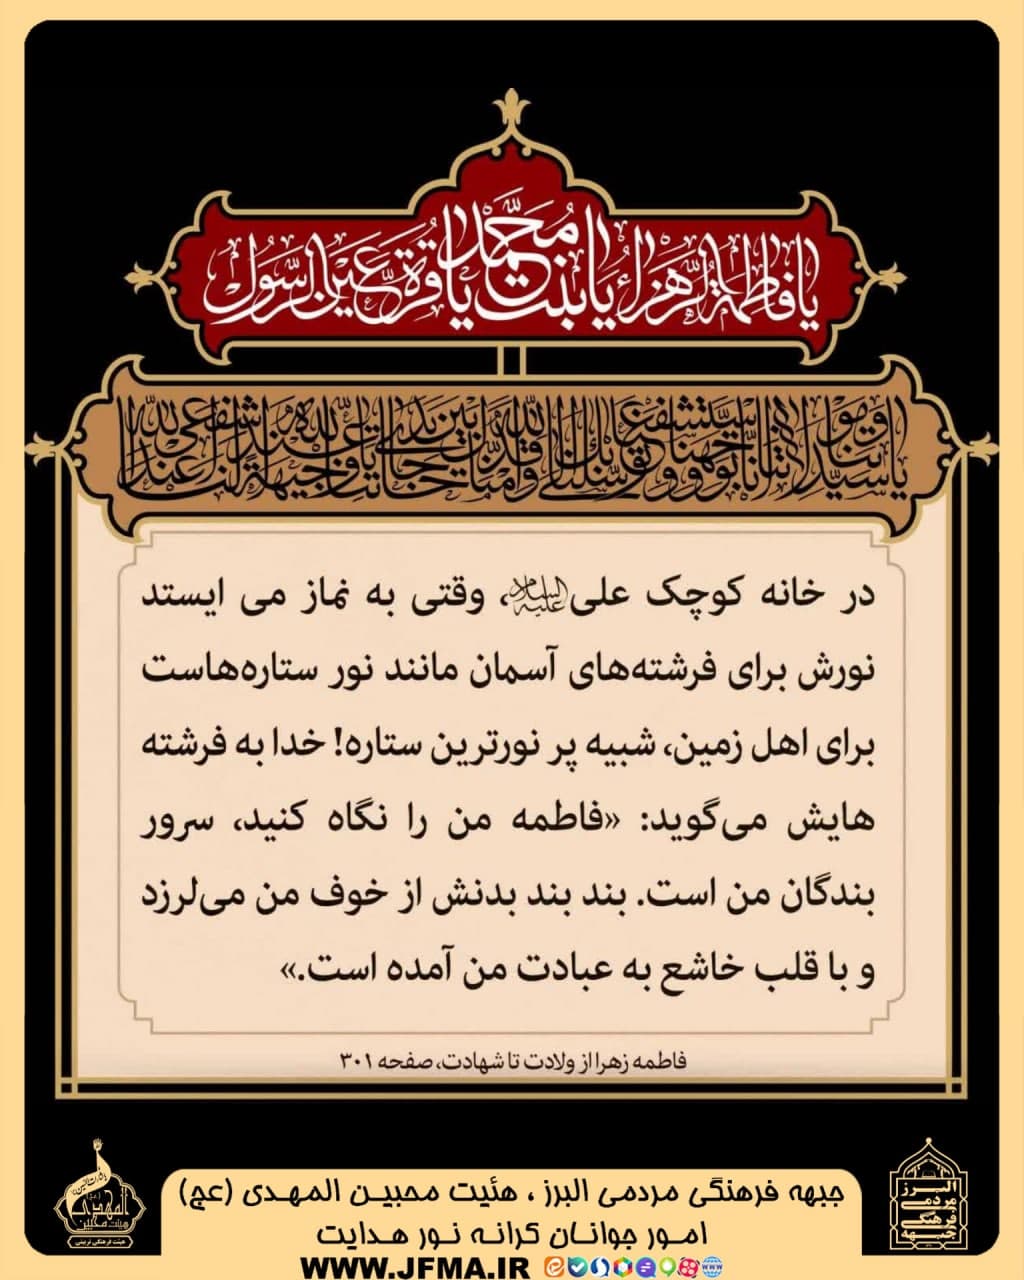 یا فاطمة الزهراء یا بنت محمد یا قرة عین الرسول
یا سیدتنا و مولاتنا انا توجهنا و استشفعنا و توسلنا بک الی الله و قدمناک بین یدی حاجاتنا یا وجیهة عند الله اشفعی لنا عند الله
در خانه کوچک علی علیه السلام، وقتی به نماز می ایستد
نورش برای فرشته‌های آسمان مانند نور ستاره‌هاست
برای اهل زمین، شبیه پر نورترین ستاره! خدا به فرشته
هایش می‌گوید: «فاطمه من را نگاه کنید، سرور
بندگان من است. بند بند بدنش از خوف من می‌لرزد
و با قلب خاشع به عبادت من آمده است.»
فاطمه زهرا از ولادت تا شهادت، صفحه ۳۰۱
جبهه فرهنگی مردمی البرز ، هئیت محبین المهدی (عج)
امور جوانان کرانه نور هدایت
WWW.JFMA.IR
المهدی
هیئت محبین
هیئت فرهنگی تربیتی
البرز
مردمی
فرهنگی
جبهه